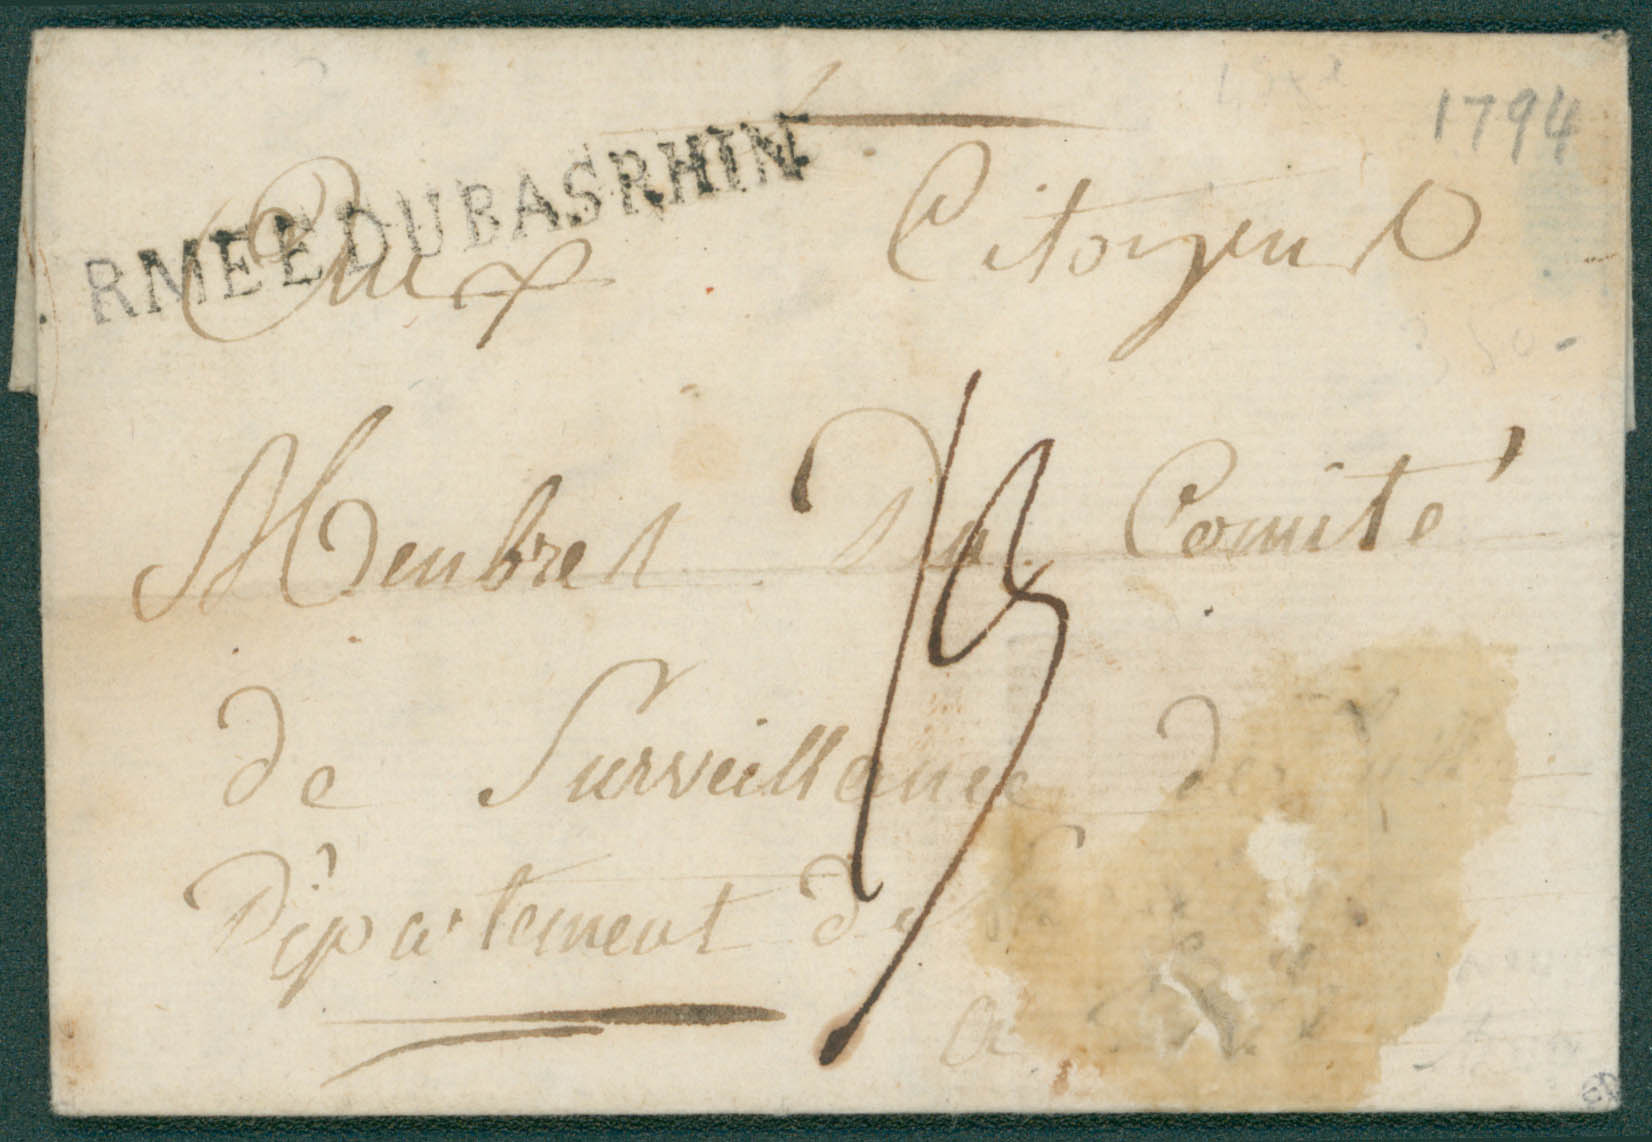 1794
RMEE DU BAS RHIN
Aux Citoyens
Membres Du Comité
de Surveillance de
Département de
a